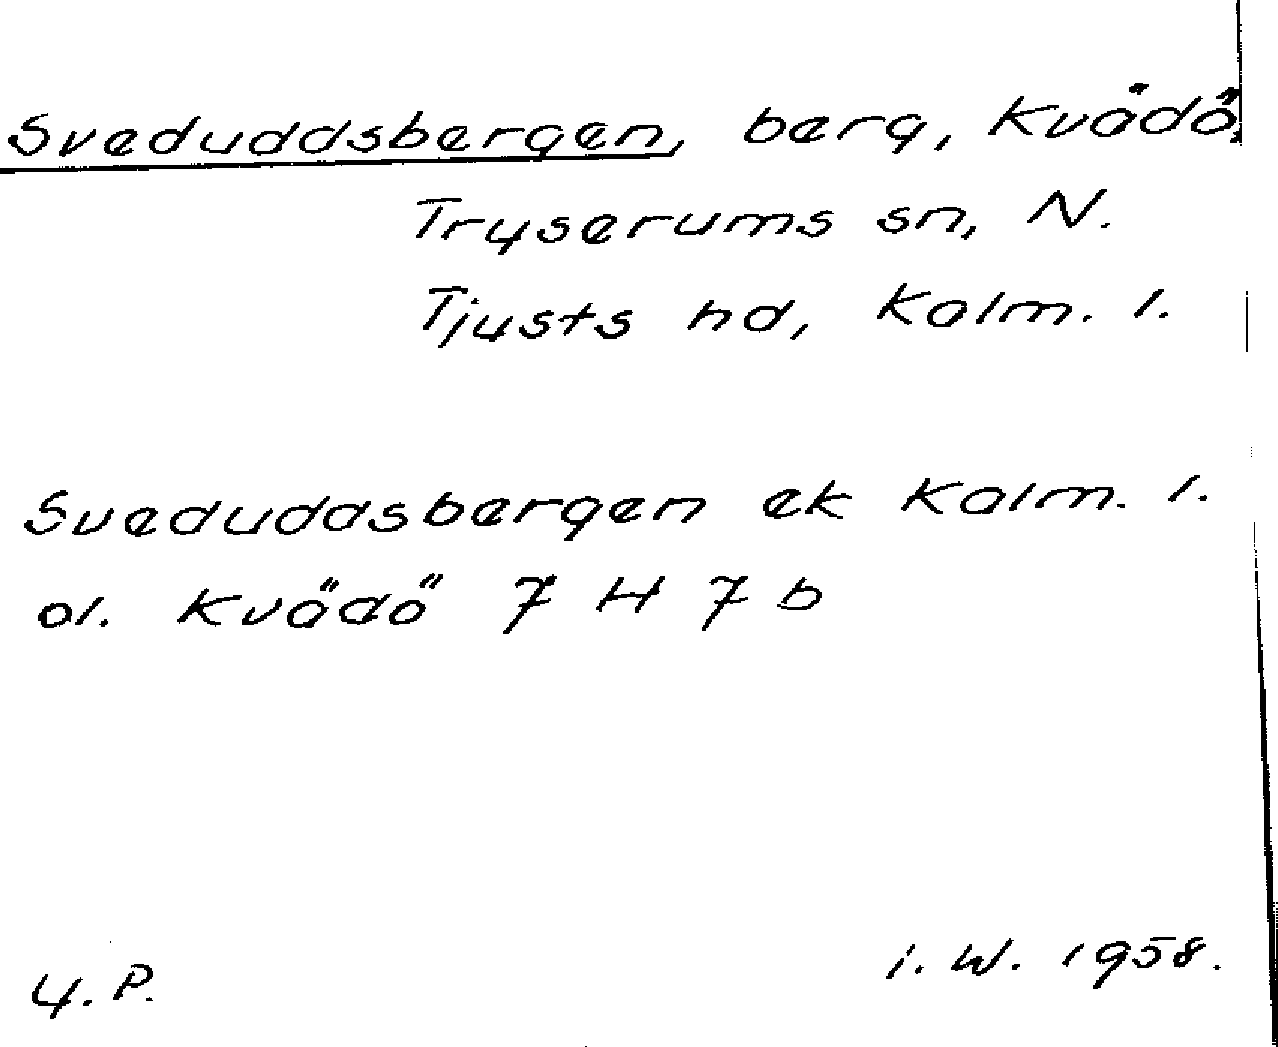 Sveduddsbergen, berg, Kvädö,
Tryserums sn, N.
Tjusts hd, Kalm. l.
Sveduddsbergen ek Kalm. l.
bl. Kvädö 7 H 7 b
4. P.
I. W. 1958.